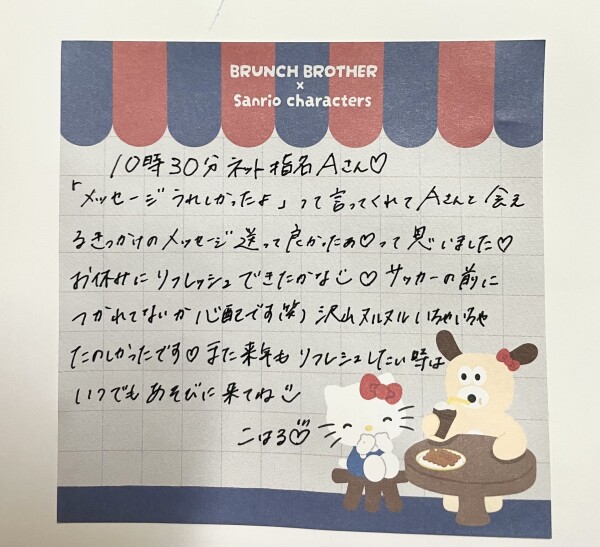 BRUNCH BROTHER
×
Sanrio characters
10時30分ネット指名Aさん♡
「メッセージうれしかったよ」って言ってくれてAさんと会え
るきっかけのメッセージ送って良かったぁ♡って思いました♡
お休みにリフレッシュできたかな♡サッカーの前に
つかれてないか心配です(笑)沢山ヌルヌルいちゃいちゃ
たのしかったです♡また来年もリフレシュしたい時は
いつでもあそびに来てね
こはる♡